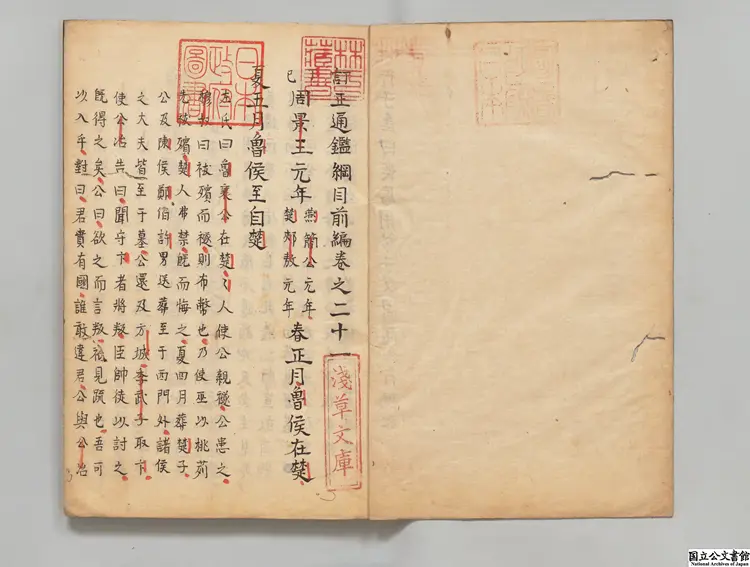 訂正通鑑綱目前編卷之二十一
丁巳周景王元年 燕簡公元年 楚郟敖元年 春正月魯侯在楚
夏五月魯侯至自楚
左氏曰魯襄公在楚々人使公親襚公患之
穆叔曰祓殯而襚則布幣也乃使巫以桃茢
先祓殯楚人弗禁既而悔之夏四月葬楚子
公及陳侯鄭伯許男送葬至于西門外諸侯
之大夫皆至于墓公還及方城季武子取卞
使公冶告曰聞守卞者將叛臣帥徒以討之
既得之矣公曰欲之而言叛祇見疏也吾可
以入乎對曰君實有國誰敢違君公與公冶
林氏藏書
日本政府圖書
淺草文庫
国立公文書館
National Archives of Japan